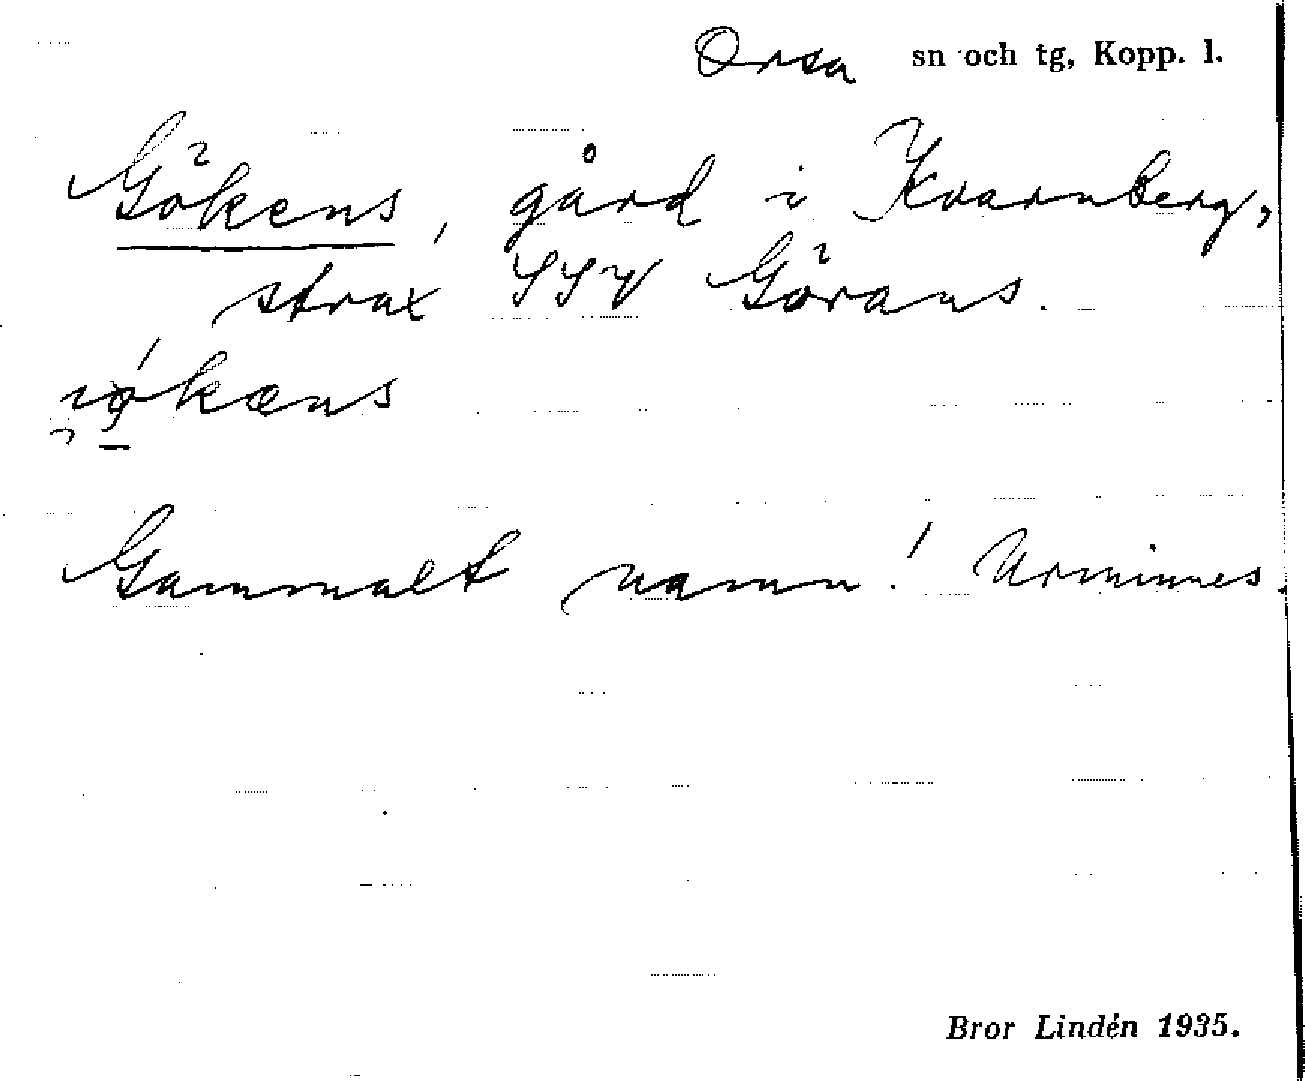 Orsa sn och tg, Kopp. l.
Gökens, gård i Kvarnberg,
strax SSV Görans.
Gammalt namn! Urminnes.
Bror Lindén 1935.